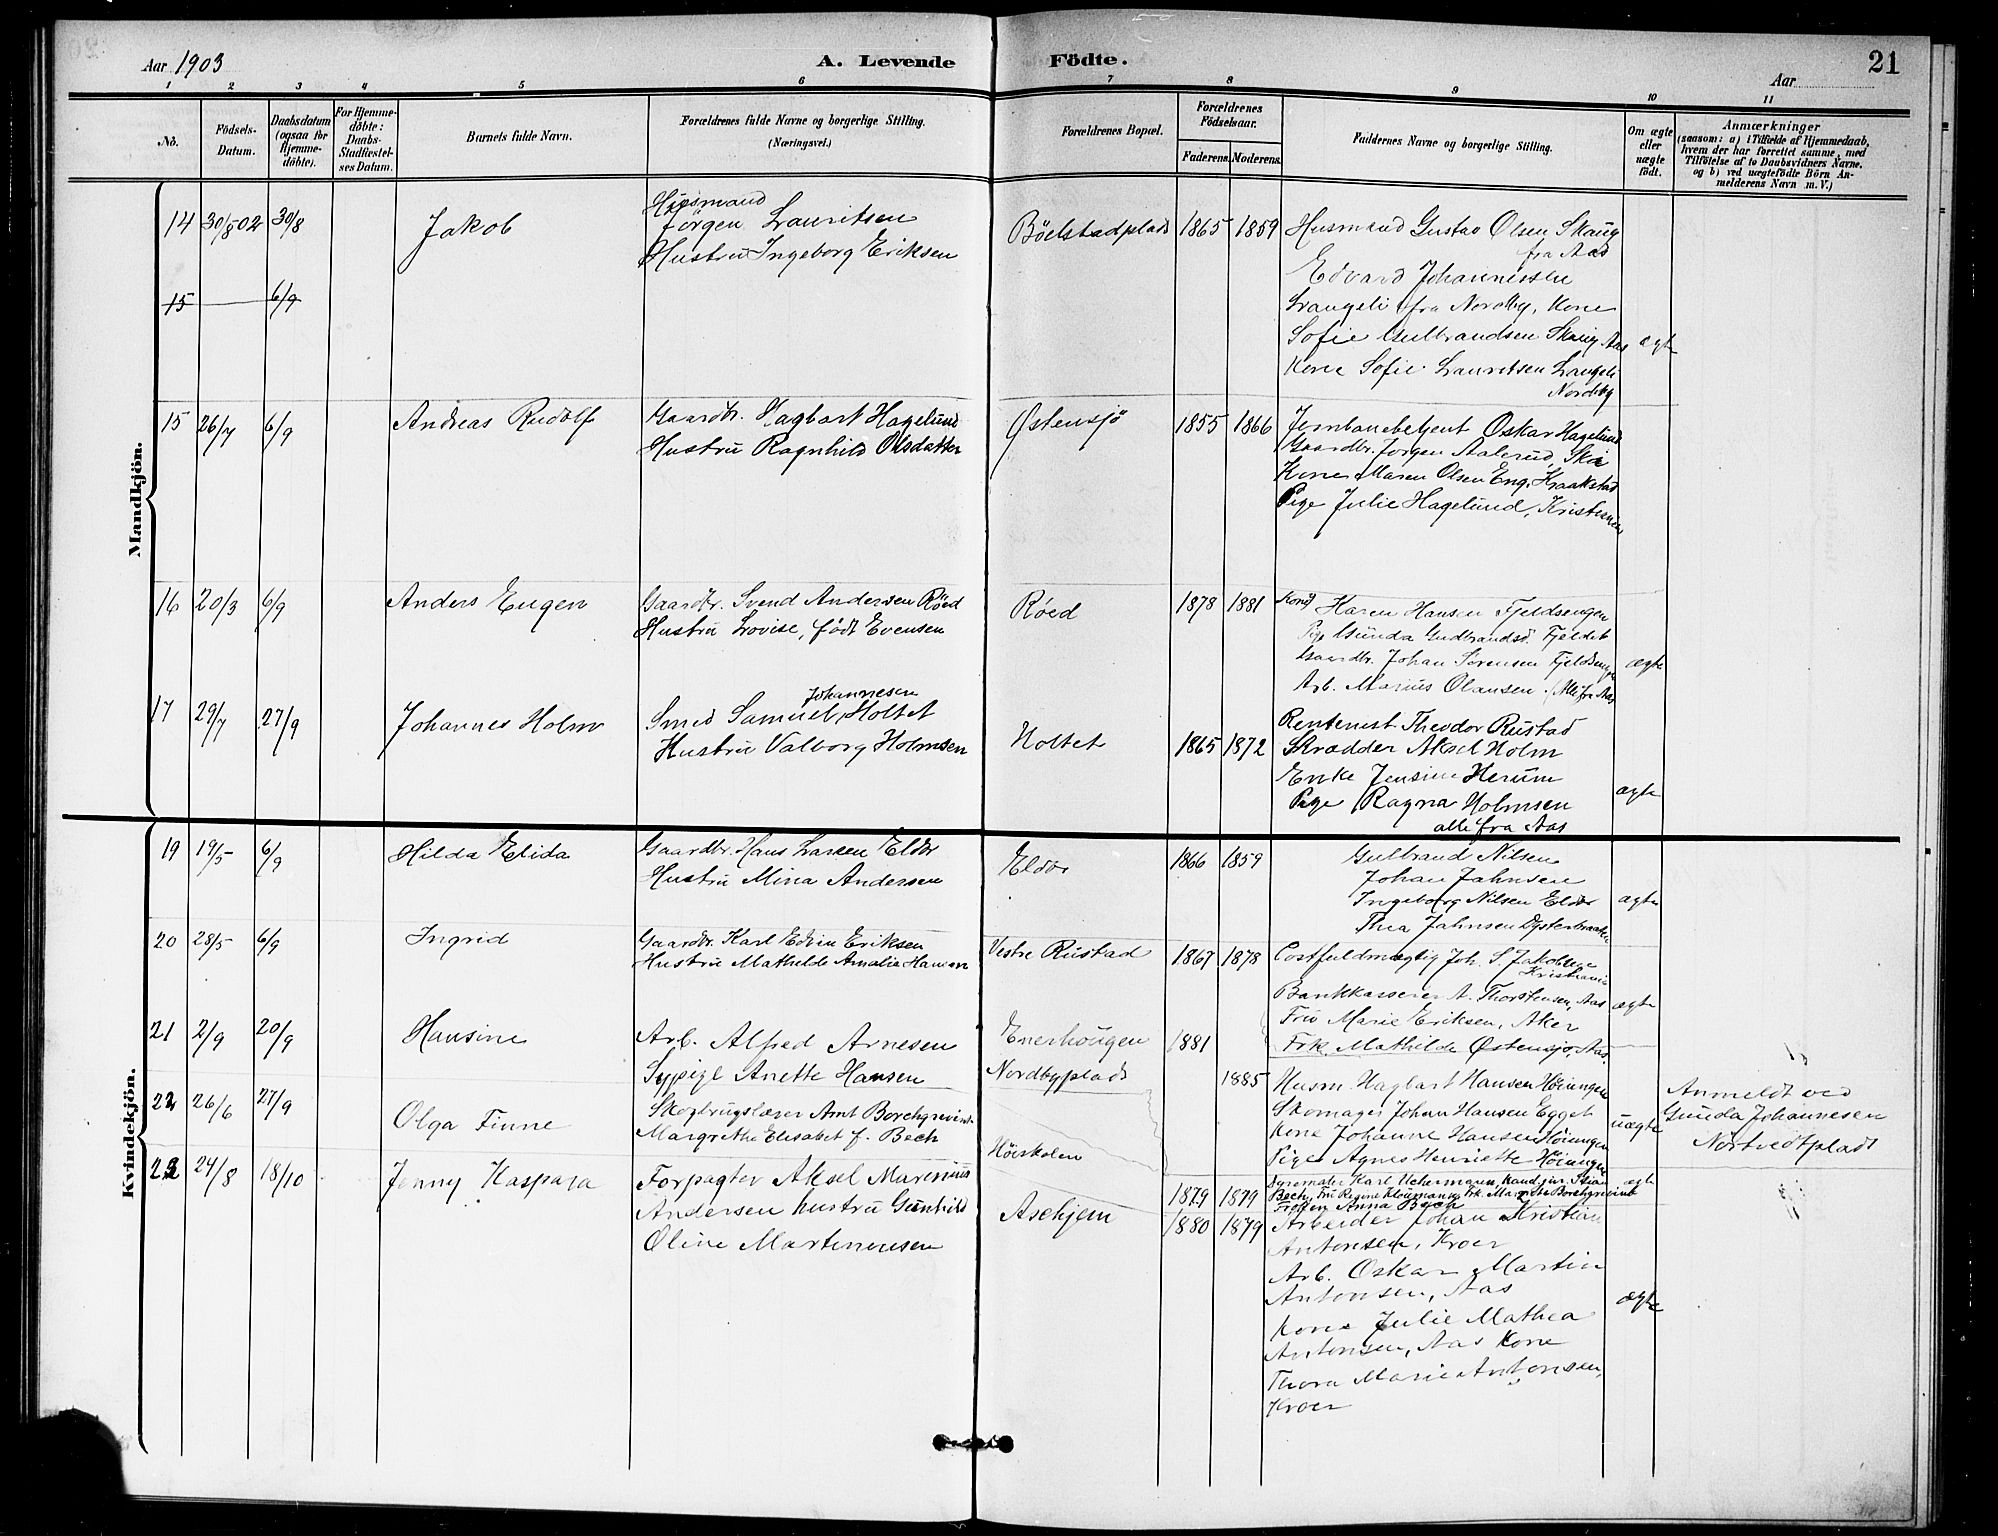 Aar 1903
A. Levende
Födte.
Aar
21
1 2 3 4 5 6 7 8 9 10 11
No.
Födsels-Datum.
Daabsdatum (ogsaa for Hjemme-döbte).
For Hjemme-döbte: Daabs-Stadfæstel-ses Datum.
Barnets fulde Navn.
Forældrenes fulde Navne og borgerlige Stilling.
(Næringsvei.)
Forældrenes Bopæl.
Forældrenes Födselsaar.
Faderens.
Moderens.
Faddernes Navne og borgerlige Stilling.
Om ægte eller uægte födt.
Anmærkninger
(saasom: a) i Tilfælde af Hjemmedaab,
hvem der har forrettet samme, med
Tilföielse af to Daabsvidners Navne,
og b) ved uægtefödte Börn An-
melderens Navn m. V.)
Mandkjön.
14 30/8 02 30/8 Jakob
Husmand
Jörgen Lauritsen
Hustru Ingeborg Eriksen
Böelstadplads 1865 1859
Husmand Gustav Olsen Skaug
fra Aas
Edvard Johannessen
Langeli fra Nordby, Kone
Sofie Gulbrandsen Skaug Aas
Kone Sofie Lauritsen Langeli
Nordby
ægte
15 6/9
15 26/7 6/9 Andreas Rudolf
Gaardbr. Hagbart Hagelund
Hustru Ragnhild Olsdatter
Østensjö 1855 1866
Jernbanebetjent Oskar Hagelund
Gaardbr. Jörgen Aalerud, Ski
Kone Maren Olsen Eng, Kraakstad
Pige Julie Hagelund, Kristiania
16 20/3 6/9 Anders Eugen
Gaardbr. Svend Andersen Röed
Hustru Lovise, født Evensen
Röed 1878 1881
Kone Karen Hansen Fjeldsengen
Pige Gunda Gudbrandsd. Fjeldet
Gaardbr. Johan Sörensen Fjeldsengen
Arb. Marius Olausen. (Alle fra Aas
ægte
17 29/7 27/9 Johannes Holm
Johannesen
Smed Samuel Holtet
Hustru Valborg Holmsen
Holtet 1865 1872
Rentenist Theodor Rustad
Skrædder Aksel Holm
Enke Jensine Herum
Pige Ragna Holmsen
alle fra Aas
ægte
Kvindekjön.
19 19/5 6/9 Hilda Elida
Gaardbr. Hans Larsen Eldor
Hustru Mina Andersen
Eldor 1866 1859
Gulbrand Nilsen
Johan Jahnsen
Ingeborg Nilsen Eldor
Thea Jahnsen Dysterbraaten
ægte
20 28/5 6/9 Ingrid
Gaardbr. Karl Edvin Eriksen
Hustru Mathilde Amalie Hansen
Vestre Rustad 1867 1878
Postfuldmægtig Joh. S. Jakobsen
Kristiania
Bankkasserer A. Thorstensen, Aas
Fru Marie Eriksen, Aker
Frk. Mathilde Østensjo, Aas
ægte
21 2/9 20/9 Hansine
Arb. Alfred Arnesen
Sypige Anette Hansen
Enerhougen
Nordbyplads
1881
1885
Husm. Hagbart Hansen Höiungen
Skomager Johan Hansen Egget
Kone Johanne Hansen Höiungen
Pige Agnes Henriette Höiungen
uægte
Anmeldt ved
Gunda Johannesen
Nortvedtplads
22 26/6 27/9 Olga Finne
Skogbrugslærer Arnt Borchgrevink
Margrethe Elisabet f. Bech
Höiskolen 1879 1879
Dyremaler Karl Uchermann, Kand. jur. Stian
Bech, Fru Regine Kloumann, Frk. Margrete Borchgrevink
Frøken Anna Bech
ægte
23 24/8 18/10 Jenny Kaspara
Forpagter Aksel Marinius
Andersen hustru Gunhild
Oline Martinussen
Aschjem 1880 1879
Arbeider Johan Kristian
Antonsen, Kroer
Arb. Oskar Martin
Antonsen, Aas
Kone Julie Mathea
Antonsen, Aas Kone
Thora Marie Antonsen,
Kroer
ægte